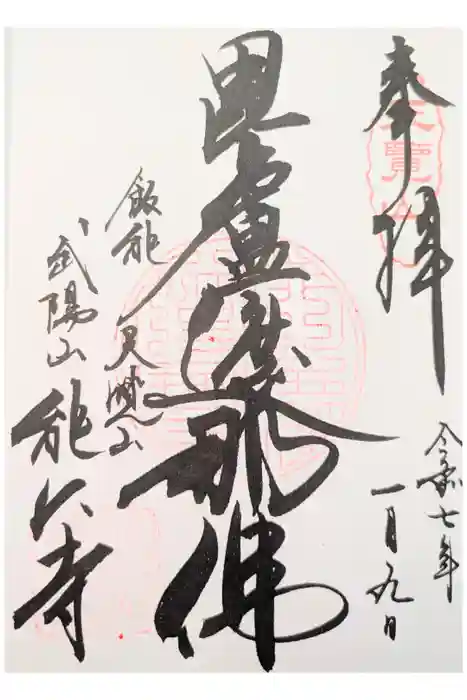 奉拝
天覽山
令和七年
一月九日
毘盧遮那佛
飯能 天覽山
武陽山能仁寺